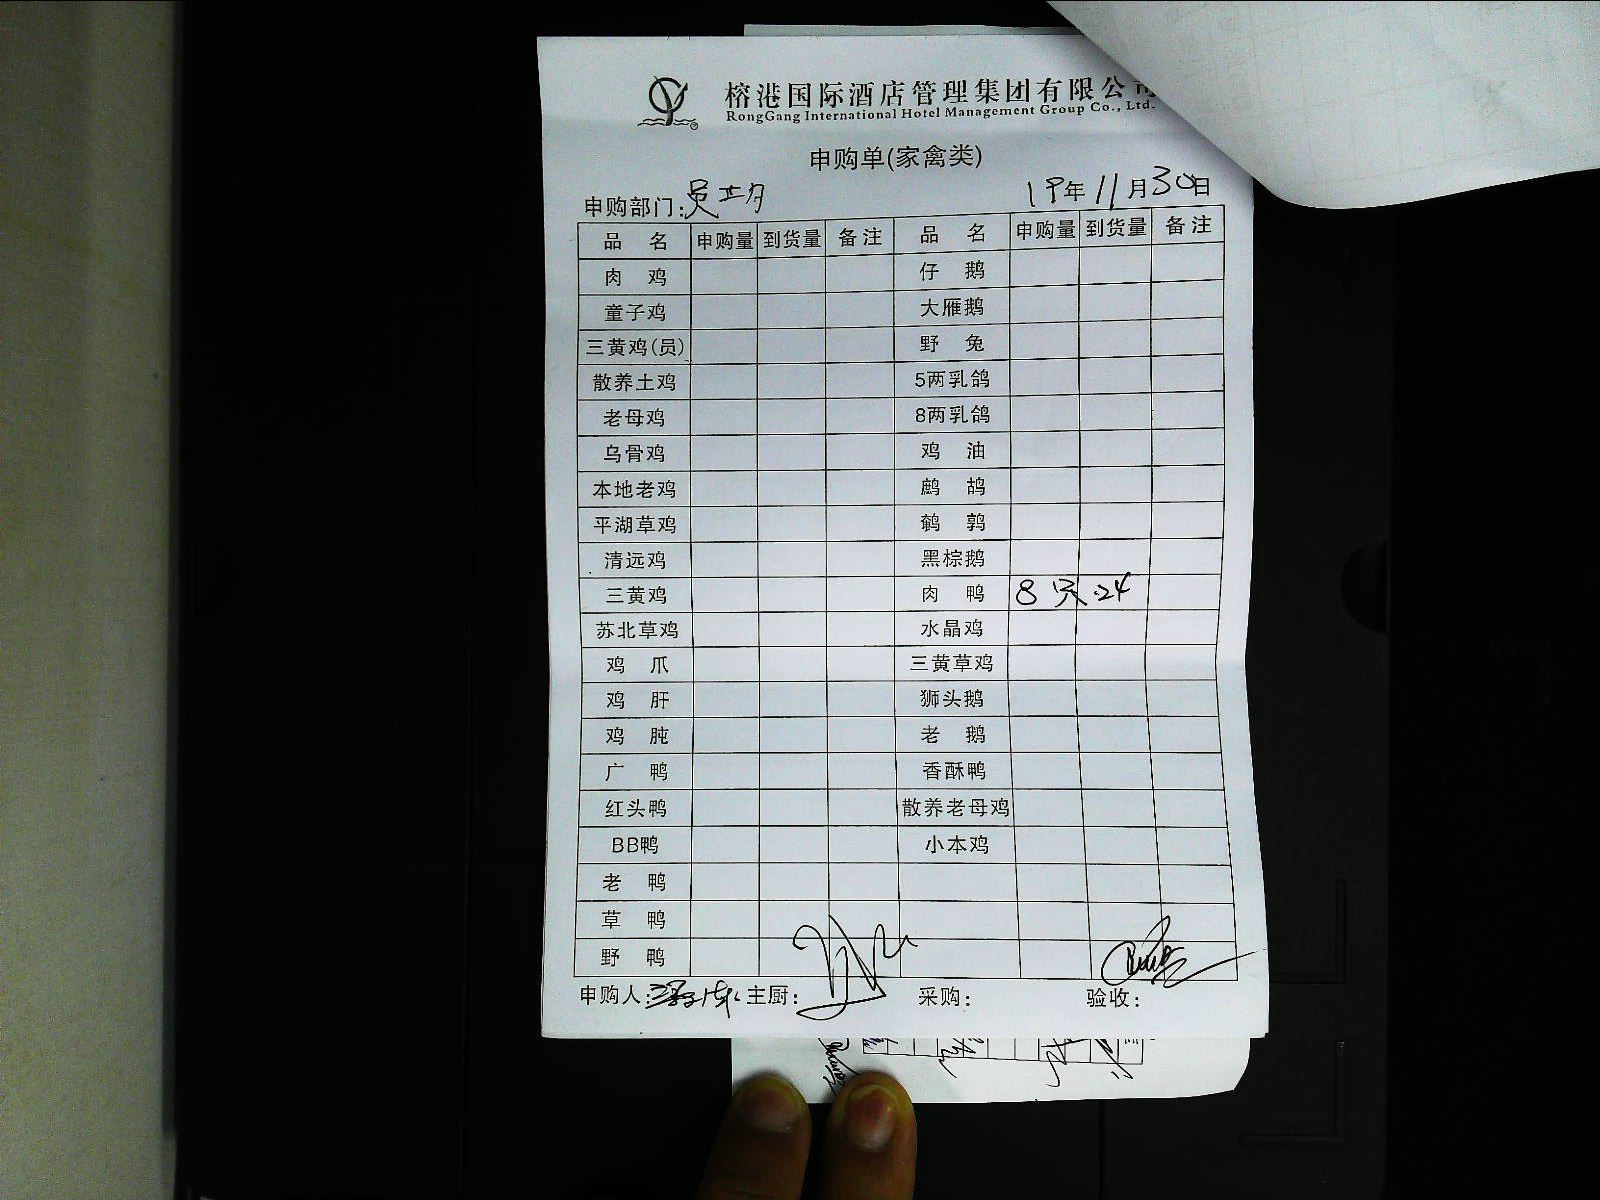 榕港国际酒店管理集团有限公司
RongGang International Hotel Management Group Co., Ltd.
申购单(家禽类)
申购部门: 19年11月30日
品名 申购量 到货量 备注 品名 申购量 到货量 备注
肉鸡 仔鹅
童子鸡 大雁鹅
三黄鸡(员) 野兔
散养土鸡 5两乳鸽
老母鸡 8两乳鸽
乌骨鸡 鸡油
本地老鸡 鹧鸪
平湖草鸡 鹌鹑
清远鸡 黑棕鹅
三黄鸡 肉鸭 8只 24
苏北草鸡 水晶鸡
鸡爪 三黄草鸡
鸡肝 狮头鹅
鸡肫 老鹅
广鸭 香酥鸭
红头鸭 散养老母鸡
BB鸭 小本鸡
老鸭
草鸭
野鸭
申购人: 主厨: 采购: 验收: